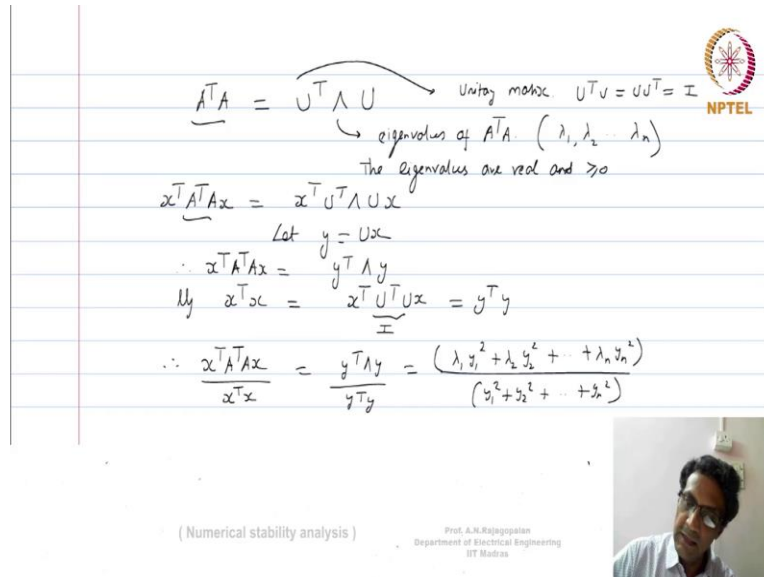 AᵀA = UᵀΛU → Unitary matrix. UᵀU = UUᵀ = I
NPTEL
→ eigenvalues of AᵀA. (λ₁, λ₂ .. λₙ)
The eigenvalues are real and ≥0
xᵀAᵀAx = xᵀUᵀΛUx
Let y = Ux
∴ xᵀAᵀAx = yᵀΛy
lly xᵀx = xᵀUᵀUx = yᵀy
I
∴ xᵀAᵀAx / xᵀx = yᵀΛy / yᵀy = (λ₁y₁² + λ₂y₂² + .. + λₙyₙ²) / (y₁² + y₂² + .. + yₙ²)
( Numerical stability analysis )
Prof. A.N.Rajagopalan
Department of Electrical Engineering
IIT Madras